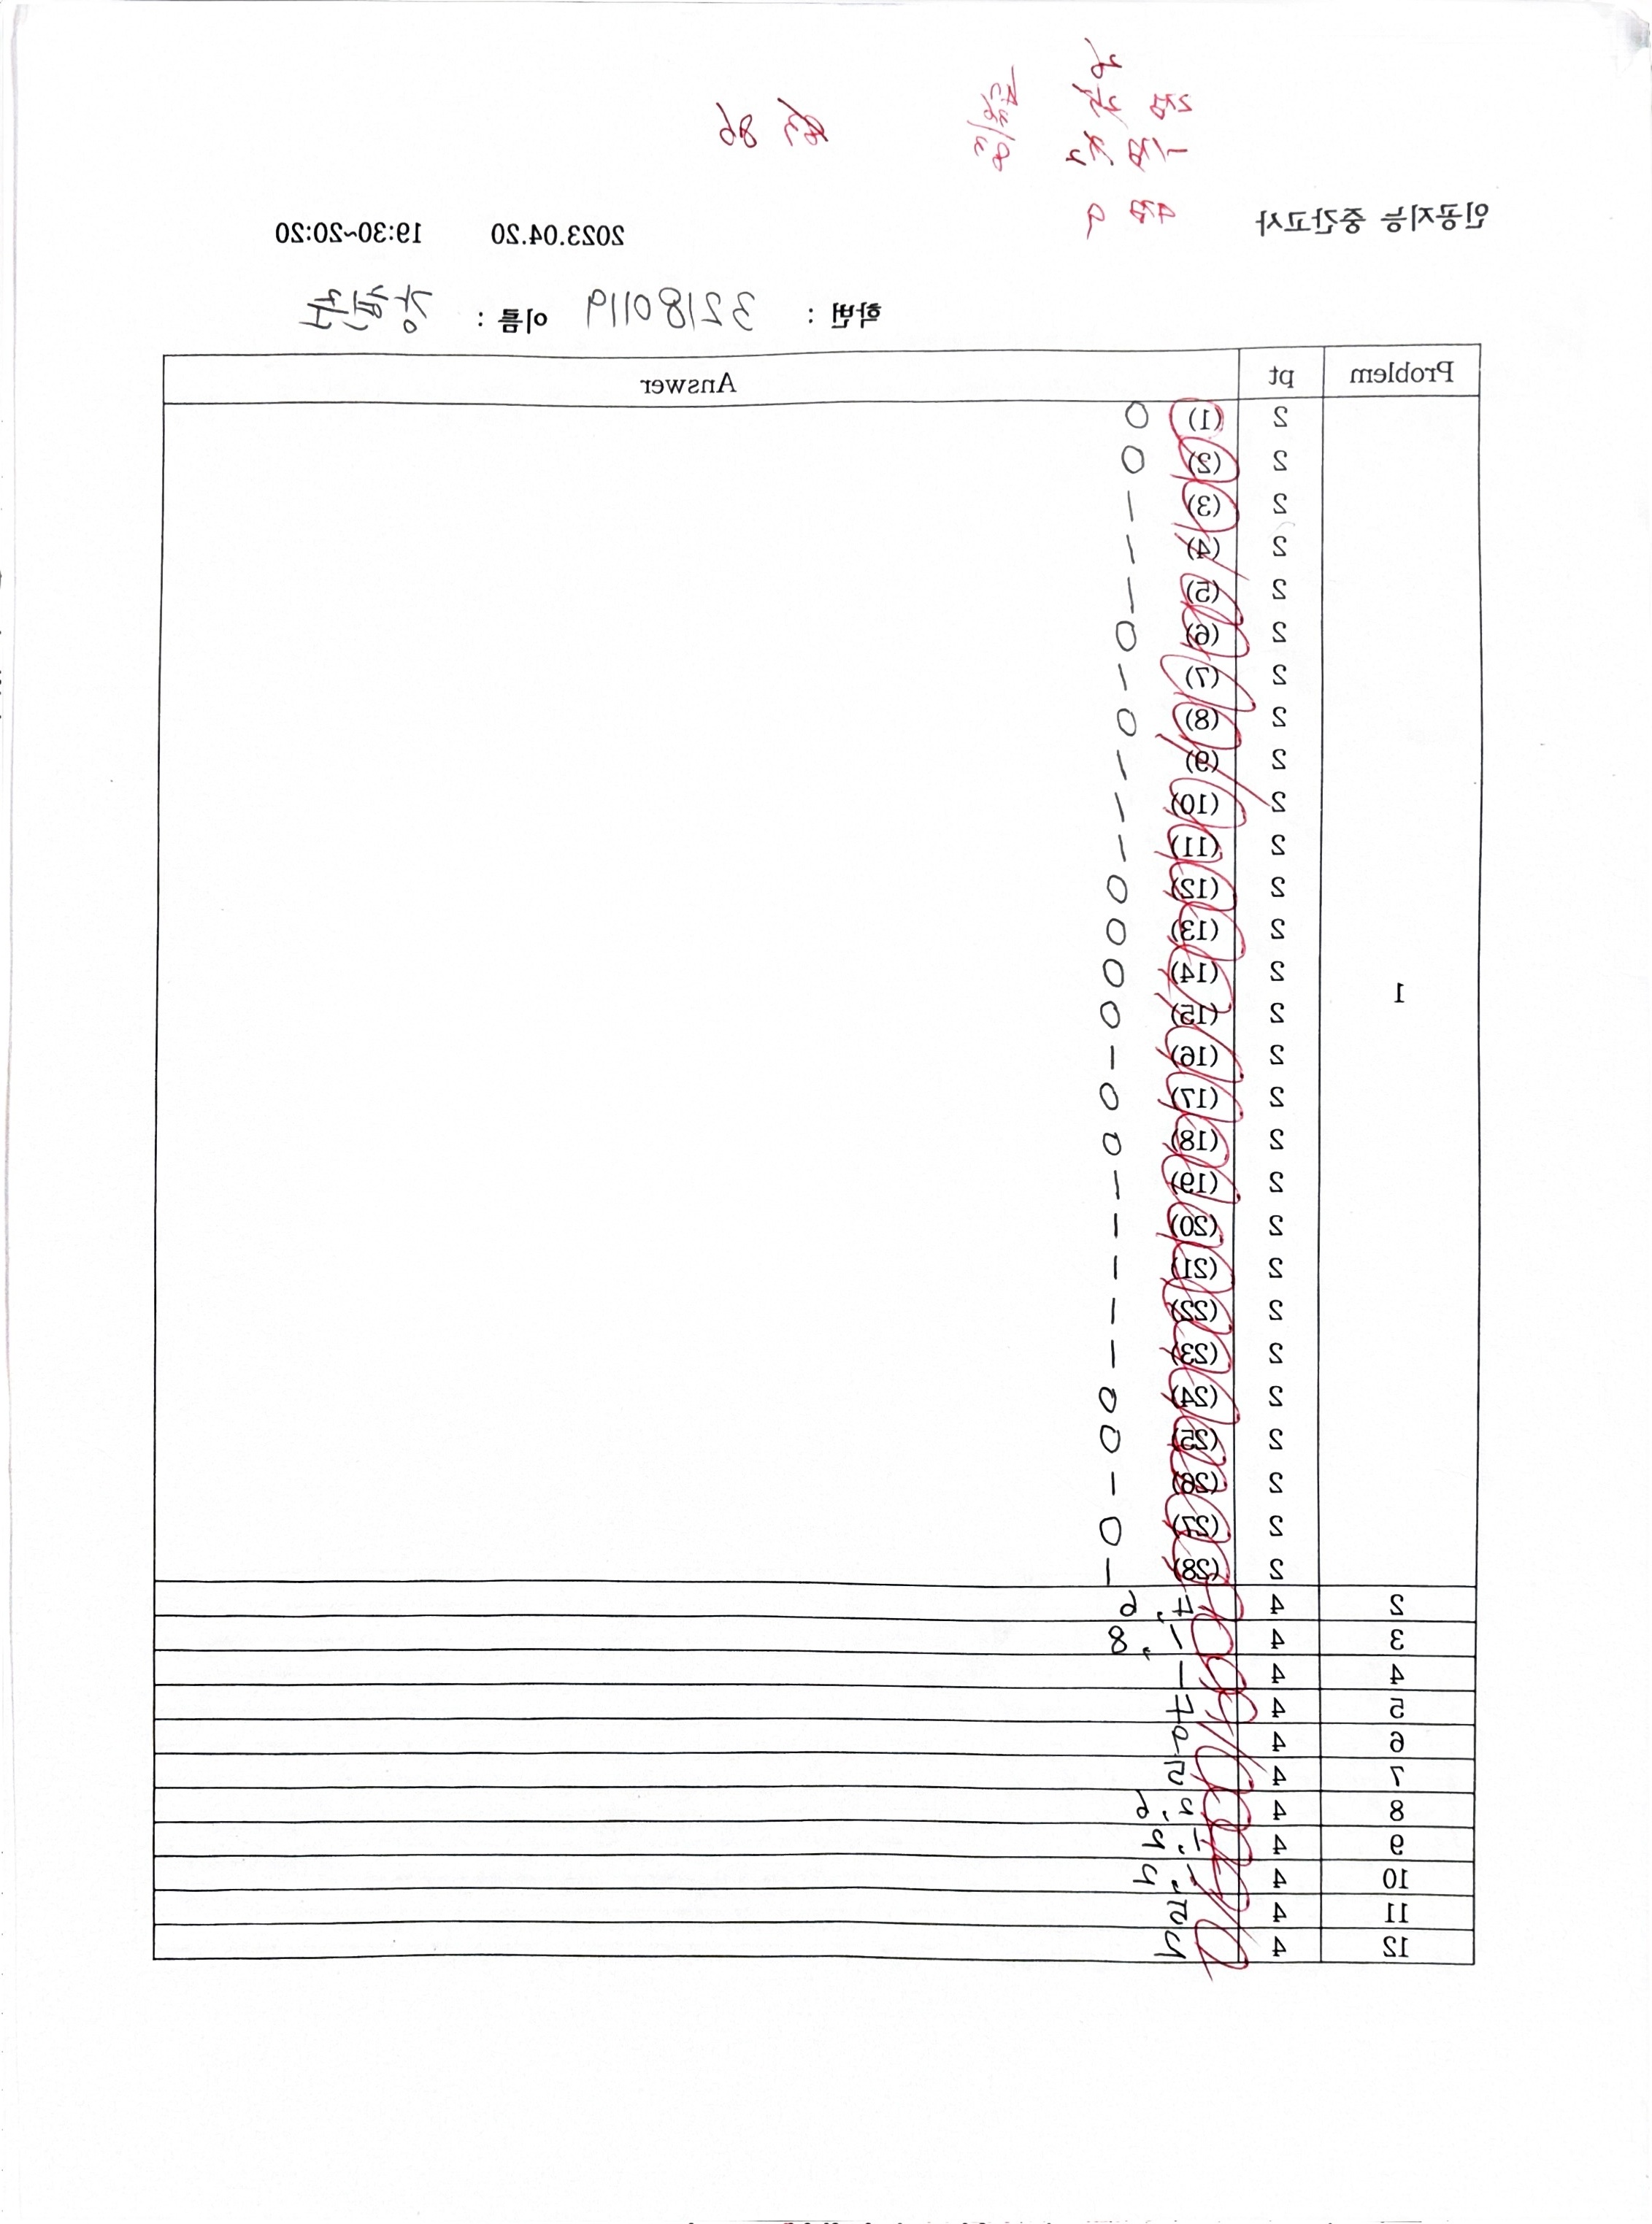 86
2점
-1점
4점
인공지능 중간고사 2023.04.20 19:30~20:20
학번 : 32180119 이름 :
Problem pt Answer
1
2 (1) 0
2 (2) 0
2 (3) 1
2 (4) 1
2 (5) 1
2 (6) 0
2 (7) 1
2 (8) 0
2 (9) 1
2 (10) 1
2 (11) 1
2 (12) 0
2 (13) 0
2 (14) 0
2 (15) 0
2 (16) 1
2 (17) 0
2 (18) 0
2 (19) 1
2 (20) 1
2 (21) 1
2 (22) 1
2 (23) 1
2 (24) 0
2 (25) 0
2 (26) 1
2 (27) 0
2 (28) 1
2 4 7, 6
3 4 1, 8
4 4 1
5 4 7
6 4
7 4
8 4
9 4
10 4
11 4
12 4